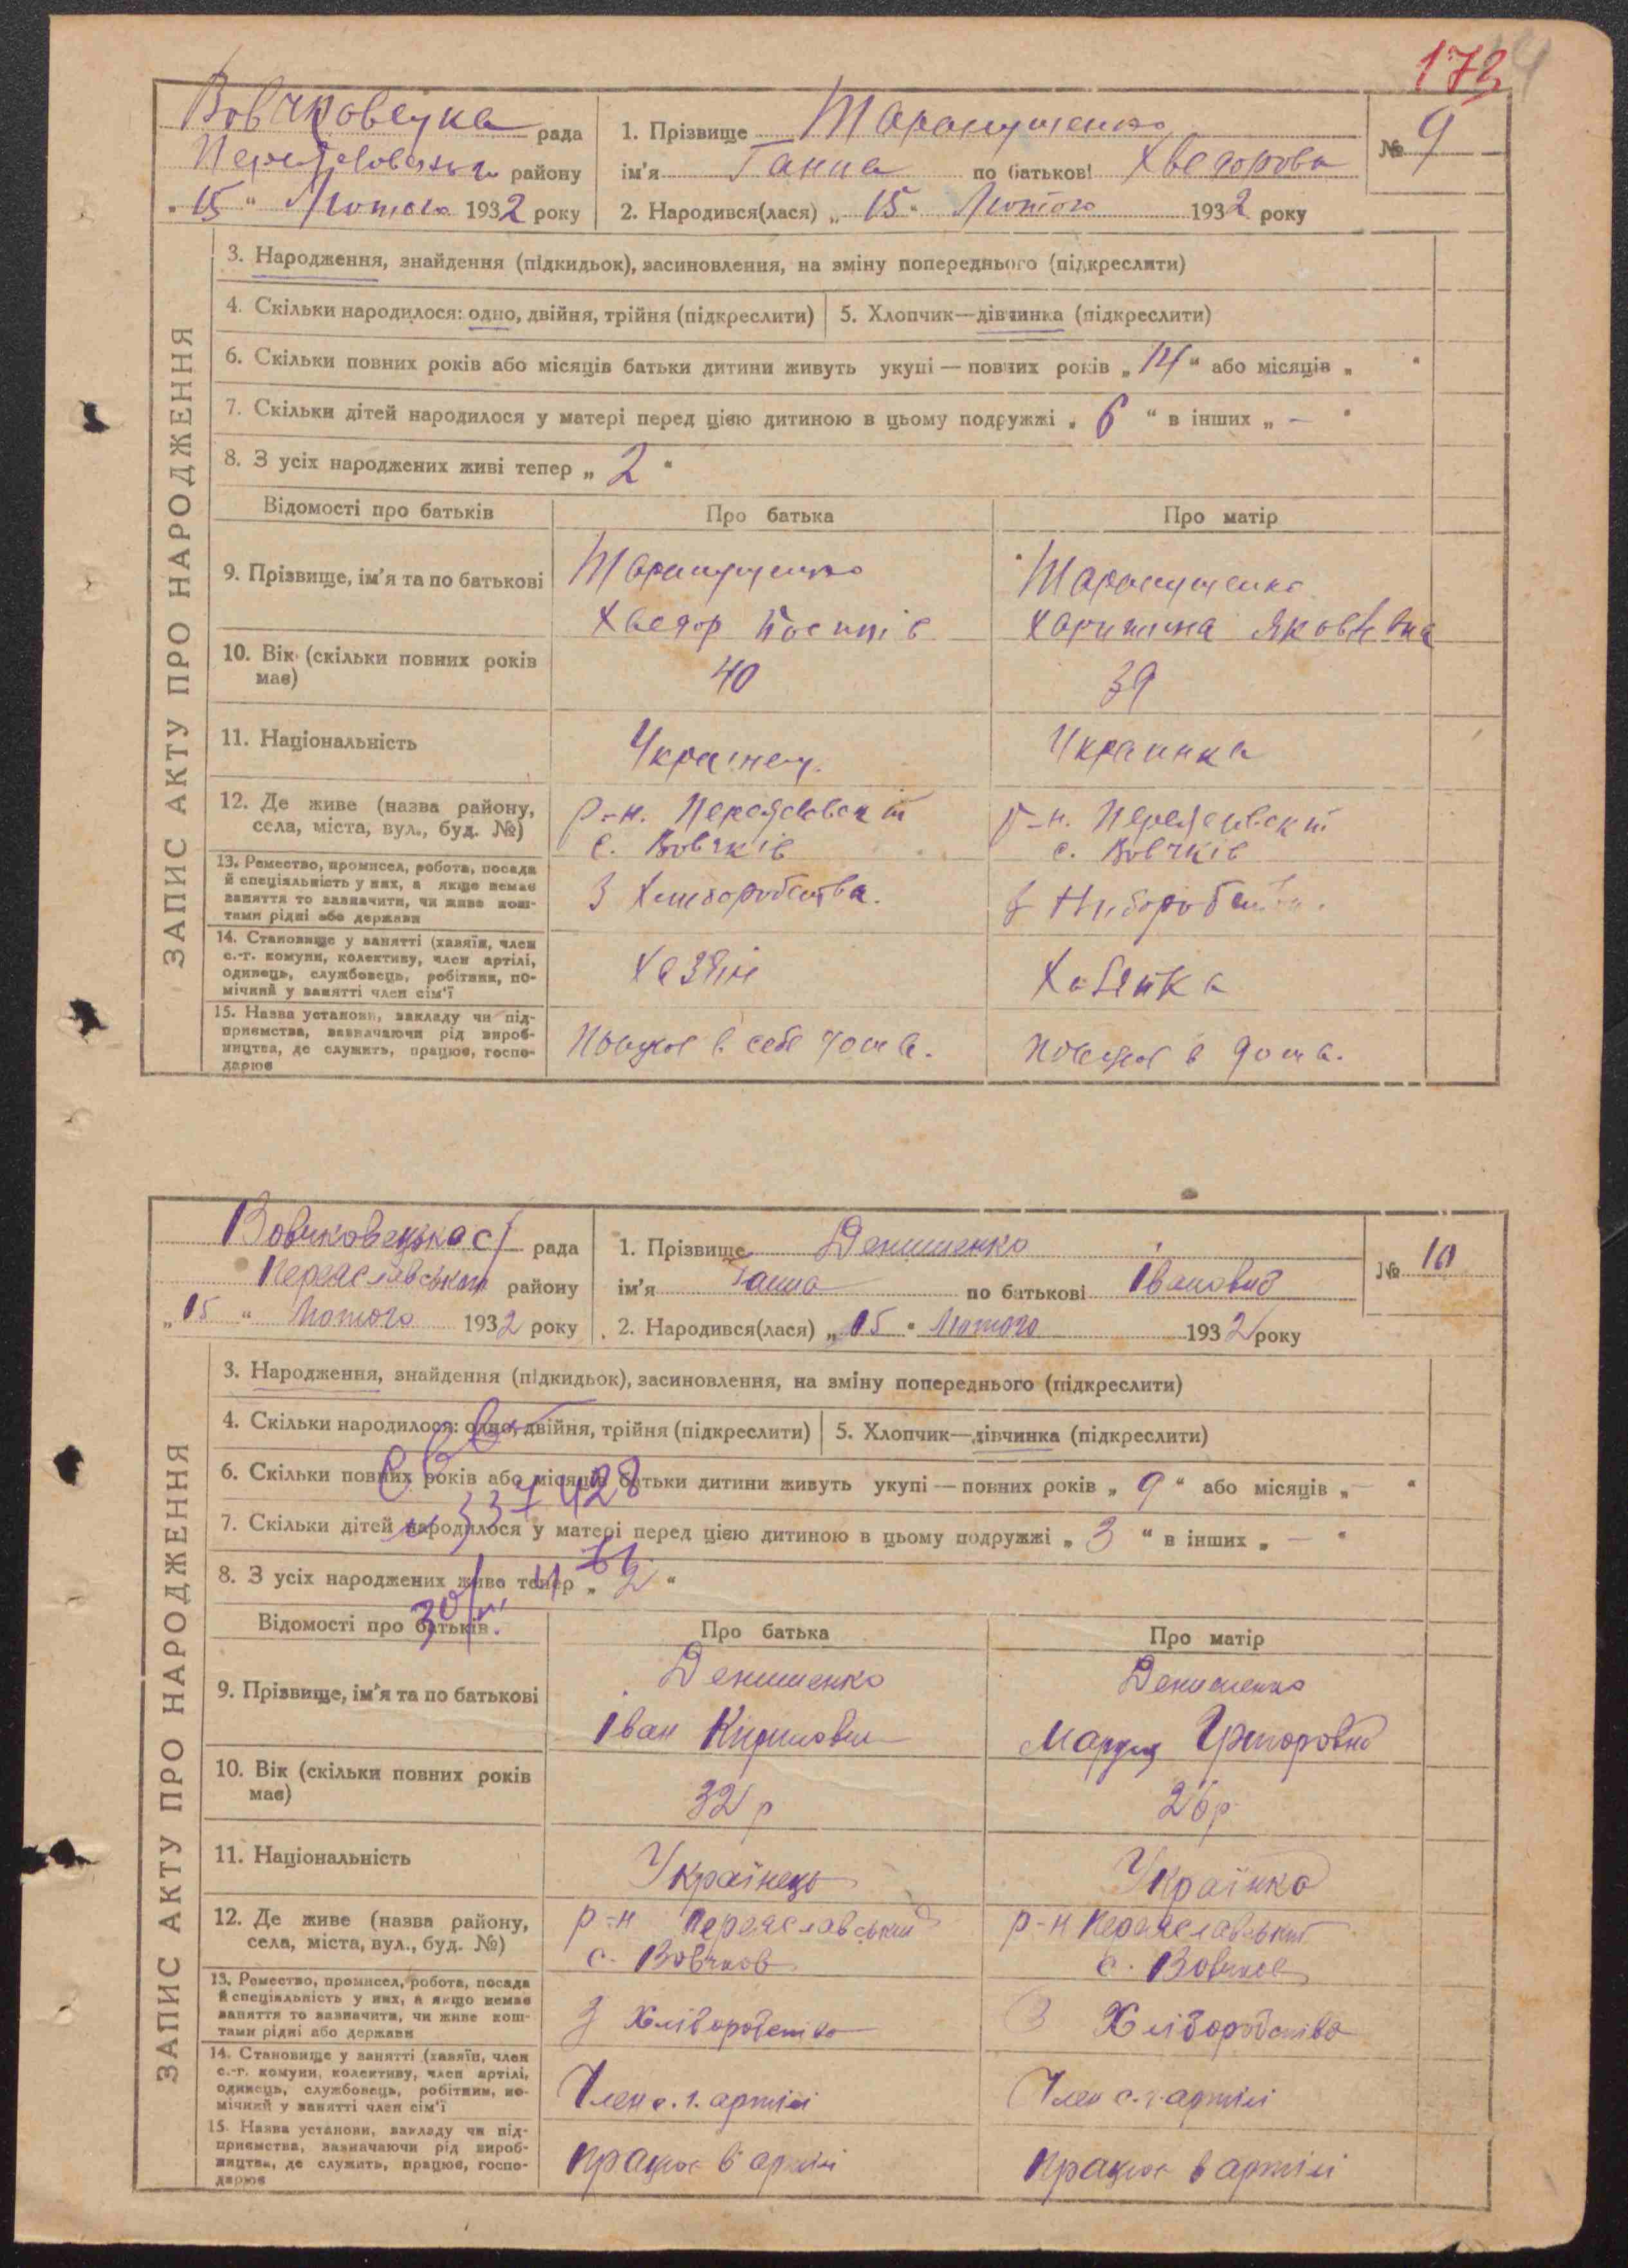 172
Вовчковецка рада
Переяславськ району
„15“ Лютого 1932 року
1. Прізвище Таранушенко
ім'я Ганна по батькові Хведорова
2. Народився(лася) „15“ Лютого 1932 року
№ 9
ЗАПИС АКТУ ПРО НАРОДЖЕННЯ
3. Народження, знайдення (підкидьок), засиновлення, на зміну попереднього (підкреслити)
4. Скільки народилося: одно, двійня, трійня (підкреслити) 5. Хлопчик—дівчинка (підкреслити)
6. Скільки повних років або місяців батьки дитини живуть укупі — повних років „14“ або місяців „ “
7. Скільки дітей народилося у матері перед цією дитиною в цьому подружжі „6“ в інших „—“
8. З усіх народжених живі тепер „2“
Відомості про батьків Про батька Про матір
9. Прізвище, ім'я та по батькові
Таранушенко
Хведор Йосипів
Таранушенко
Харитина Яковлівна
10. Вік (скільки повних років
має)
40
39
11. Національність
Украінец
Украинка
12. Де живе (назва району,
села, міста, вул., буд. №)
р-н. Переяславскій
с. Вовчків
р-н. Переяславскій
с. Вовчків
13. Ремество, промисел, робота, посада
й спеціяльність у них, а якщо немає
заняття то зазначити, чи живе кош-
тами рідні або держави
З Хлиборобства.
З Хлиборобства.
14. Становище у занятті (хазяїн, член
с.-г. комуни, колективу, член артілі,
одинець, службовець, робітник, по-
мічний у занятті член сім'ї
Хазяін
Хазяйка
15. Назва установи, закладу чи під-
приємства, зазначаючи рід вироб-
ництва, де служить, працює, госпо-
дарює
Працює в себе дома.
Працює в дома.
Вовчковецька с/ рада
Переяславський району
„15“ Лютого 1932 року
1. Прізвище Денишенко
ім'я Ганна по батькові Івановна
2. Народився(лася) „15“ Лютого 1932 року
№ 10
ЗАПИС АКТУ ПРО НАРОДЖЕННЯ
3. Народження, знайдення (підкидьок), засиновлення, на зміну попереднього (підкреслити)
4. Скільки народилося: одно, двійня, трійня (підкреслити) 5. Хлопчик—дівчинка (підкреслити)
6. Скільки повних років або місяців батьки дитини живуть укупі — повних років „9“ або місяців „—“
337428
7. Скільки дітей народилося у матері перед цією дитиною в цьому подружжі „3“ в інших „—“
8. З усіх народжених живе тепер „2“
Відомості про батьків. Про батька Про матір
9. Прізвище, ім'я та по батькові
Денишенко
Іван Кирилович
Денишенко
Маруся Григоровна
10. Вік (скільки повних років
має)
32 р
26 р
11. Національність
Українець
Українка
12. Де живе (назва району,
села, міста, вул., буд. №)
р-н Переяславський
с. Вовчков
р-н Переяславський
с. Вовчков
13. Ремество, промисел, робота, посада
й спеціяльність у них, а якщо немає
заняття то зазначити, чи живе кош-
тами рідні або держави
З Хліборобства
З Хліборобства
14. Становище у занятті (хазяїн, член
с.-г. комуни, колективу, член артілі,
одинець, службовець, робітник, по-
мічний у занятті член сім'ї
Член с. г. артілі
Член с. г. артілі
15. Назва установи, закладу чи під-
приємства, зазначаючи рід вироб-
ництва, де служить, працює, госпо-
дарює
працює в артілі
працює в артілі